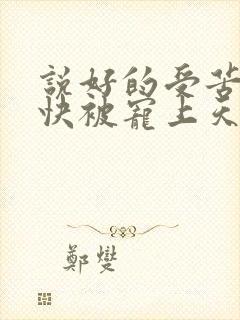 說好的受苦
快被寵上天
鄭燮